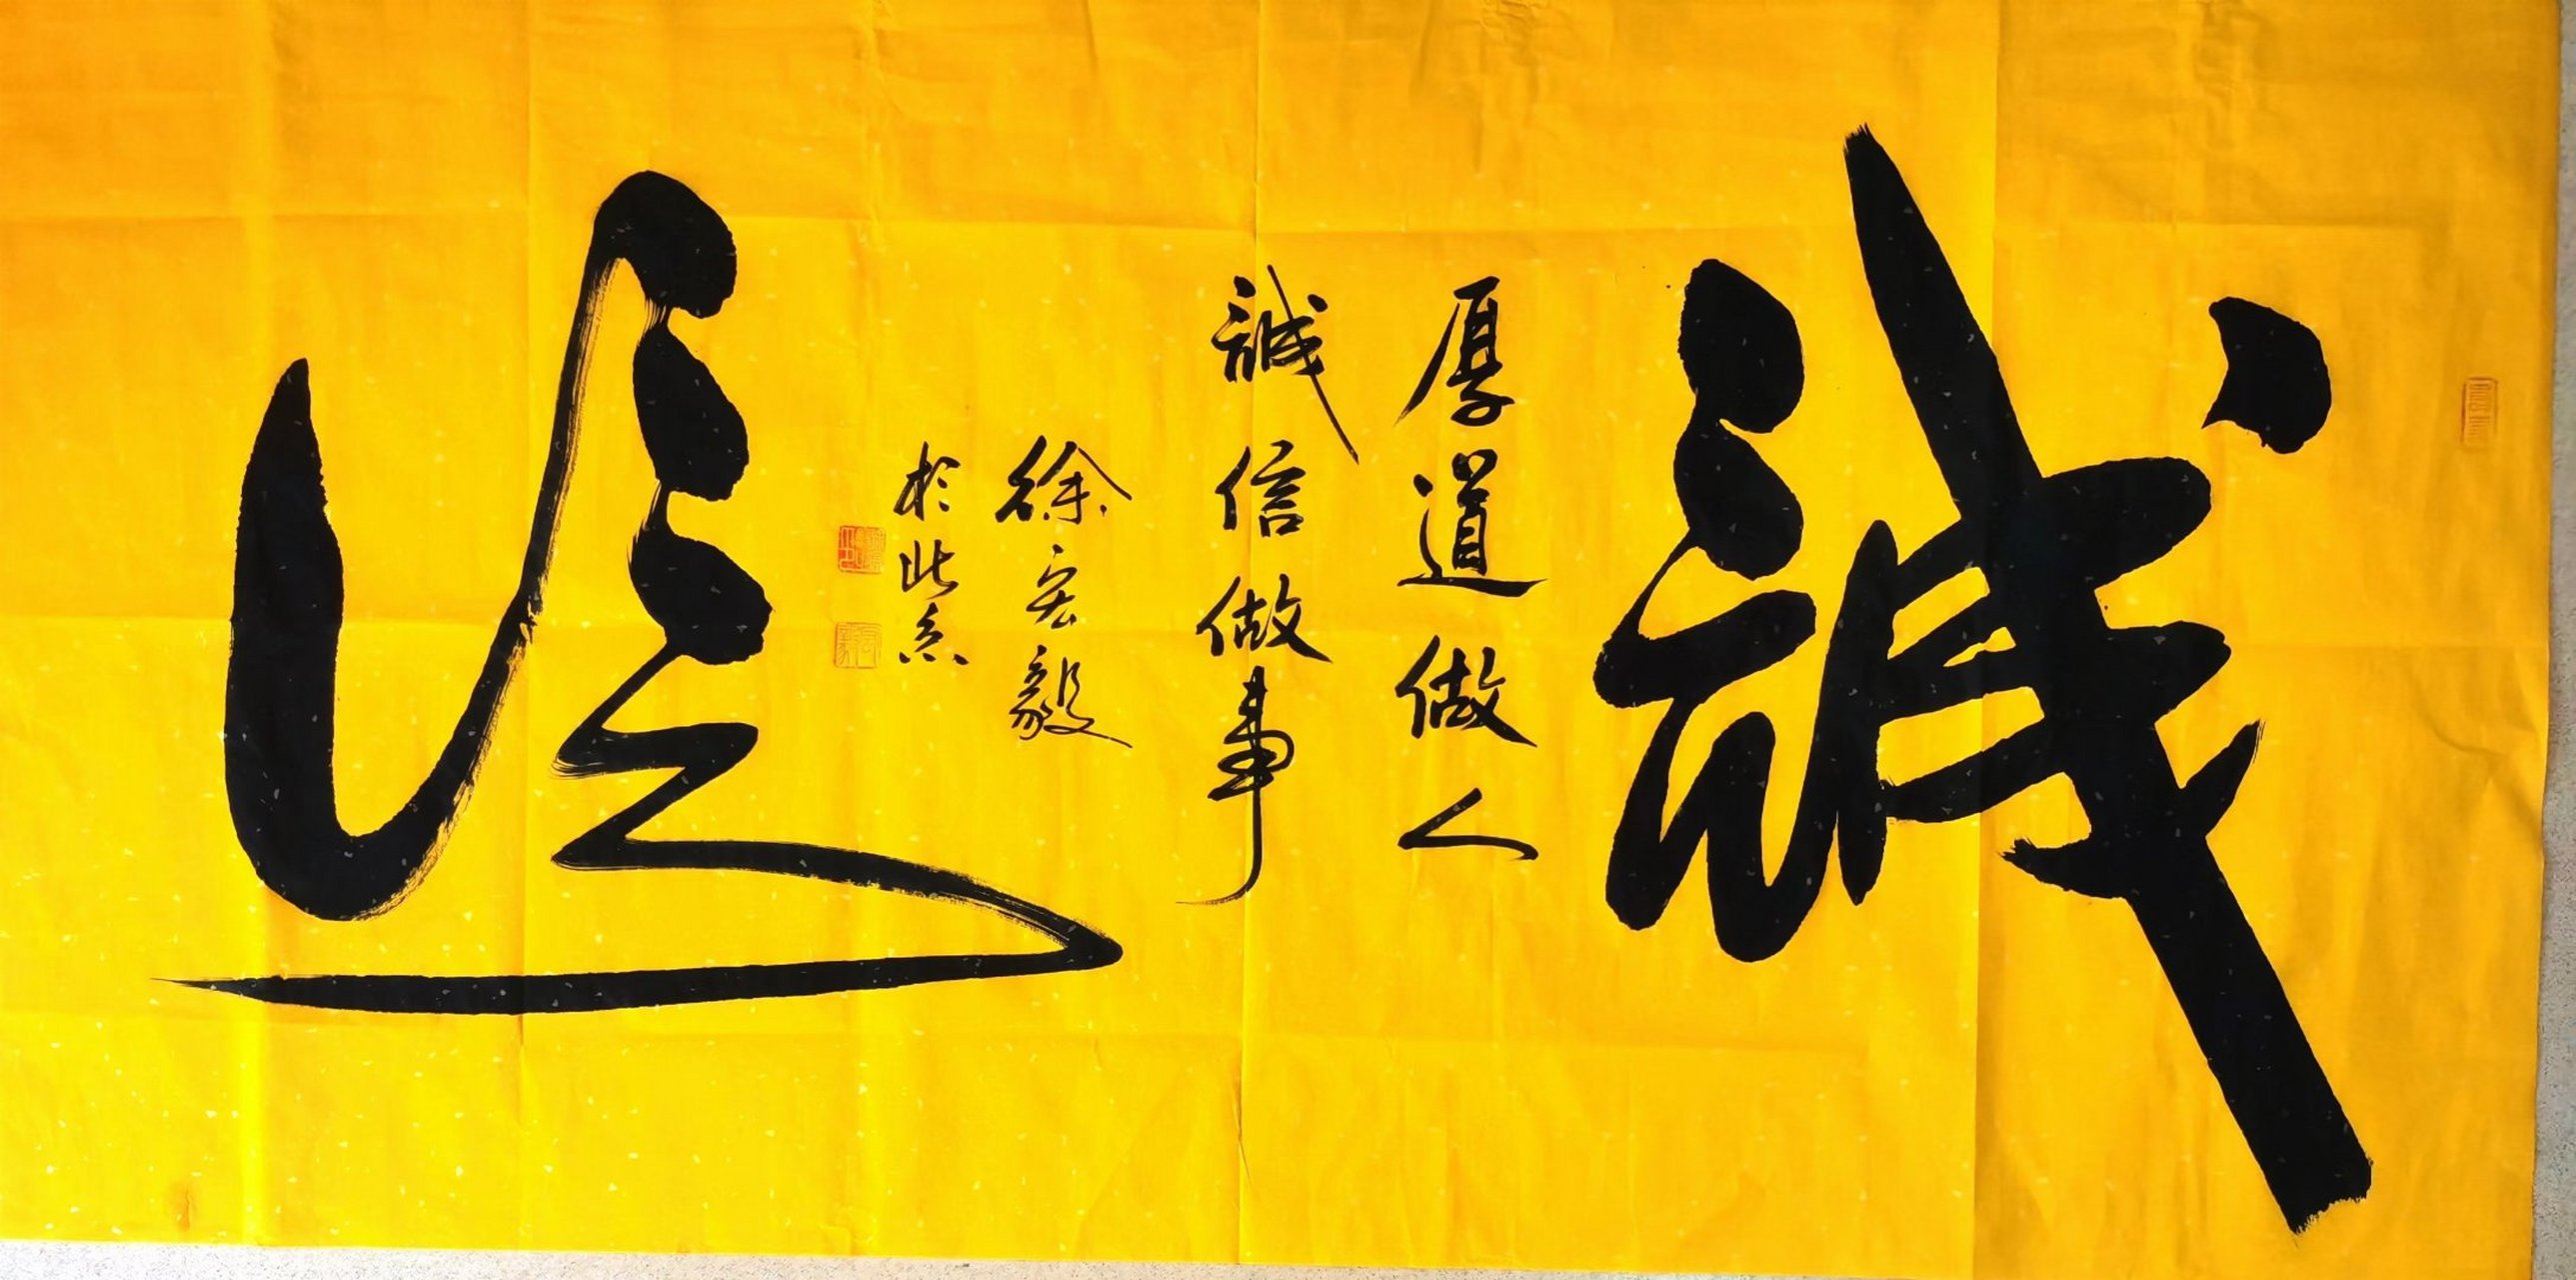 誠信
厚道做人
誠信做事
徐宏毅
於北京